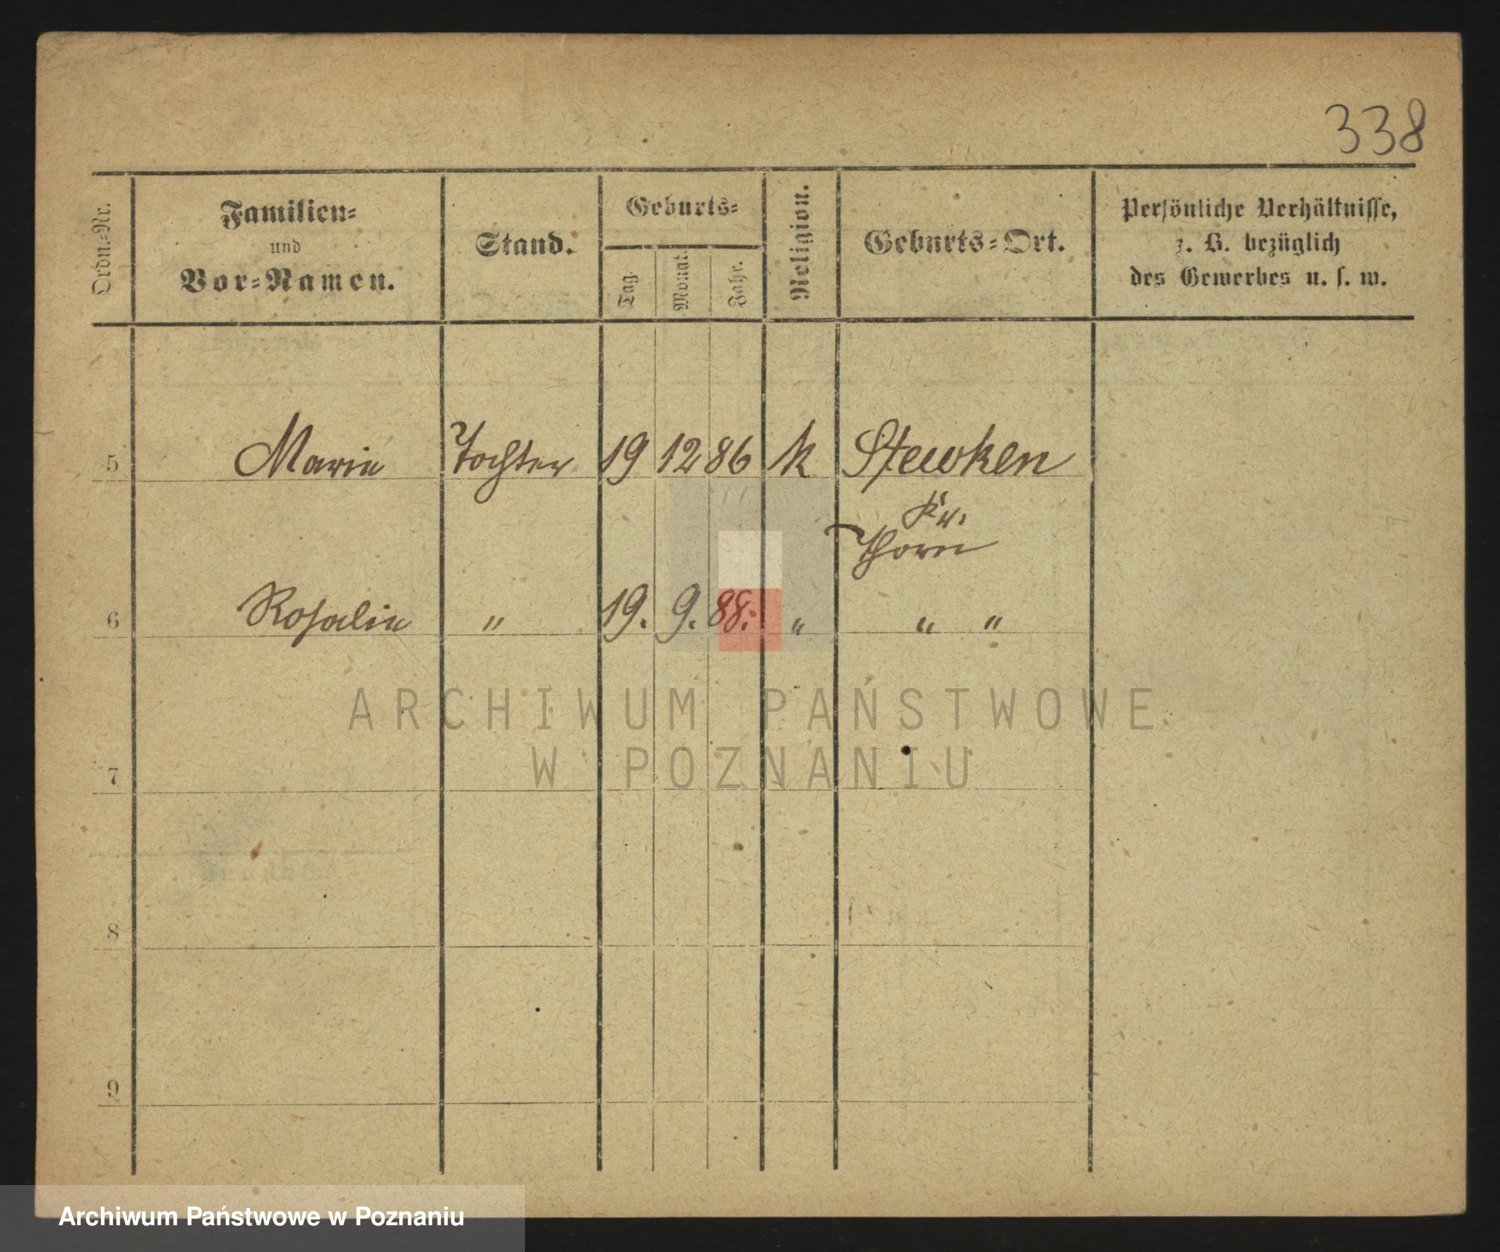 338
Ordn.-Nr.
Familien-
und
Vor-Namen.
Stand.
Geburts-
Tag.
Monat.
Jahr.
Religion.
Geburts-Ort.
Persönliche Verhältnisse,
z. B. bezüglich
des Gewerbes u. s. w.
5 Marie Tochter 19 12 86 k Stewken
Kr.
Thorn
6 Rosalie " 19. 9. 88. " " "
ARCHIWUM PAŃSTWOWE
W POZNANIU
7
8
9
Archiwum Państwowe w Poznaniu